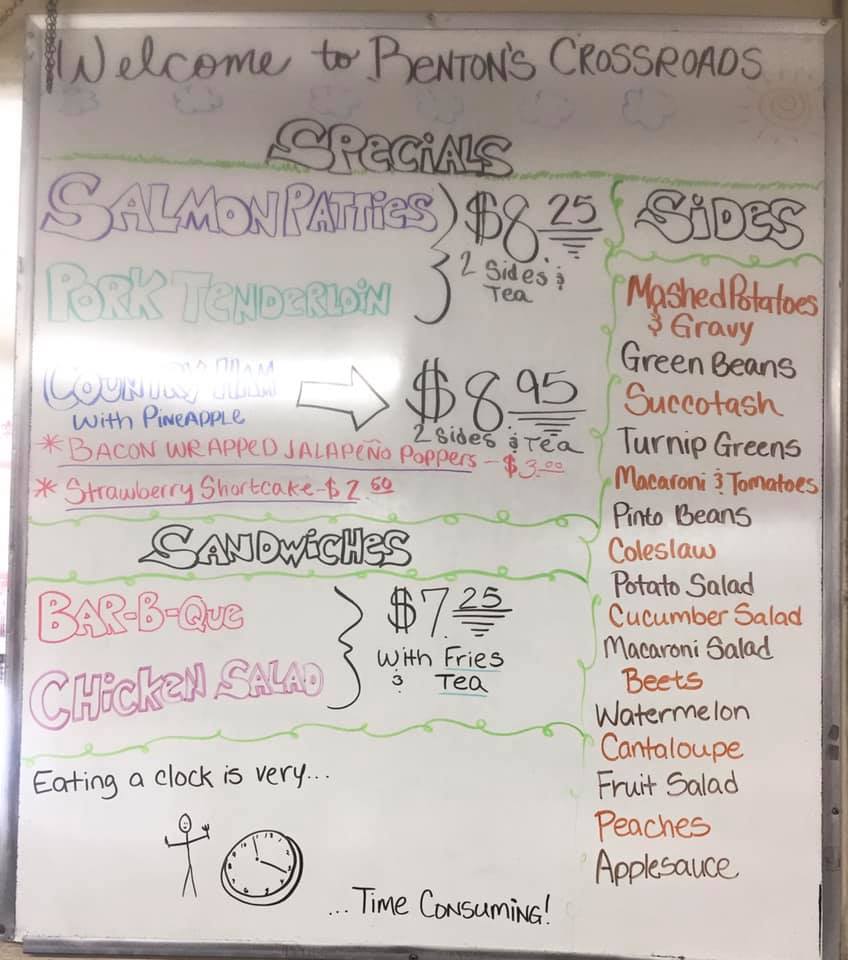 Welcome to Benton's Crossroads
Specials
Salmon Patties
Pork Tenderloin
$8.25
2 Sides &
Tea
Country Ham
With Pineapple
$8.95
2 Sides & Tea
* Bacon Wrapped Jalapeño Poppers - $3.00
* Strawberry Shortcake - $2.50
Sandwiches
Bar-B-Que
Chicken Salad
$7.25
With Fries
& Tea
Eating a clock is very...
...Time Consuming!
Sides
Mashed Potatoes
& Gravy
Green Beans
Succotash
Turnip Greens
Macaroni & Tomatoes
Pinto Beans
Coleslaw
Potato Salad
Cucumber Salad
Macaroni Salad
Beets
Watermelon
Cantaloupe
Fruit Salad
Peaches
Applesauce